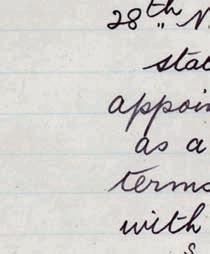 28th N
stat
appoin
as a
terms
with